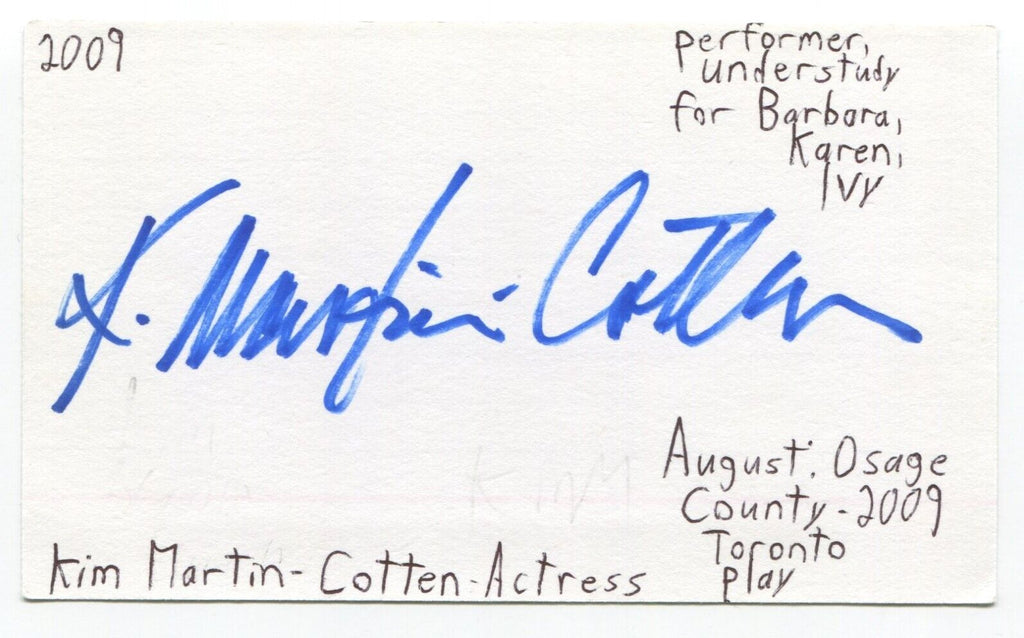 2009
performer,
understudy
for Barbara,
Karen,
IVY
K. Martin-Cotten
August: Osage
County-2009
Toronto
play
KIM
Kim Martin-Cotten-Actress